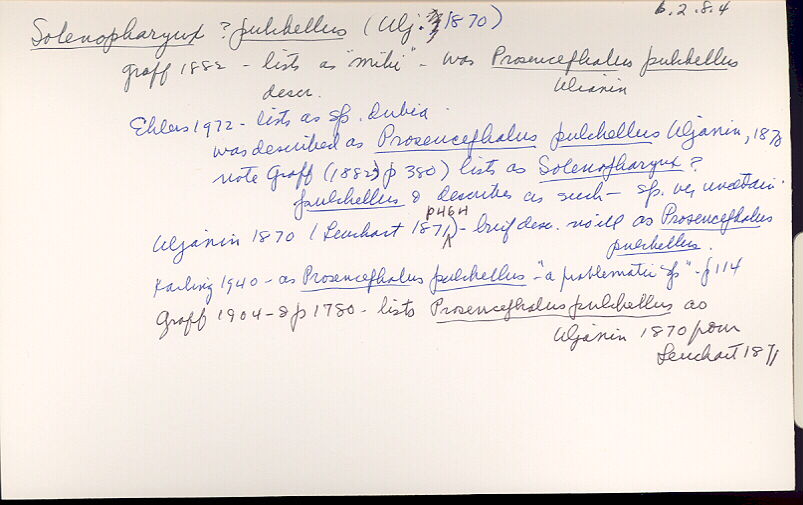 6.2.8.4
Solenopharynx ? pulchellus (Ulj. 1870)
Graff 1882 - lists as "mihi" - was Prosencephalus pulchellus
descr. Ulianin
Ehlers 1972 - lists as sp. dubia.
was described as Prosencephalus pulchellus Uljanin, 1870
note Graff (1882) p 380) lists as Solenopharynx ?
pulchellus & describes as such - sp. very uncertain.
p464
Uljanin 1870 (Leuchart 1871) - brief desc. no ill as Prosencephalus
pulchellus.
Karling 1940 - as Prosencephalus pulchellus - "a problematic sp" - p 114
Graff 1904-8 p 1780 - lists Prosencephalus pulchellus as
Uljanin 1870 from
Leuchart 1871